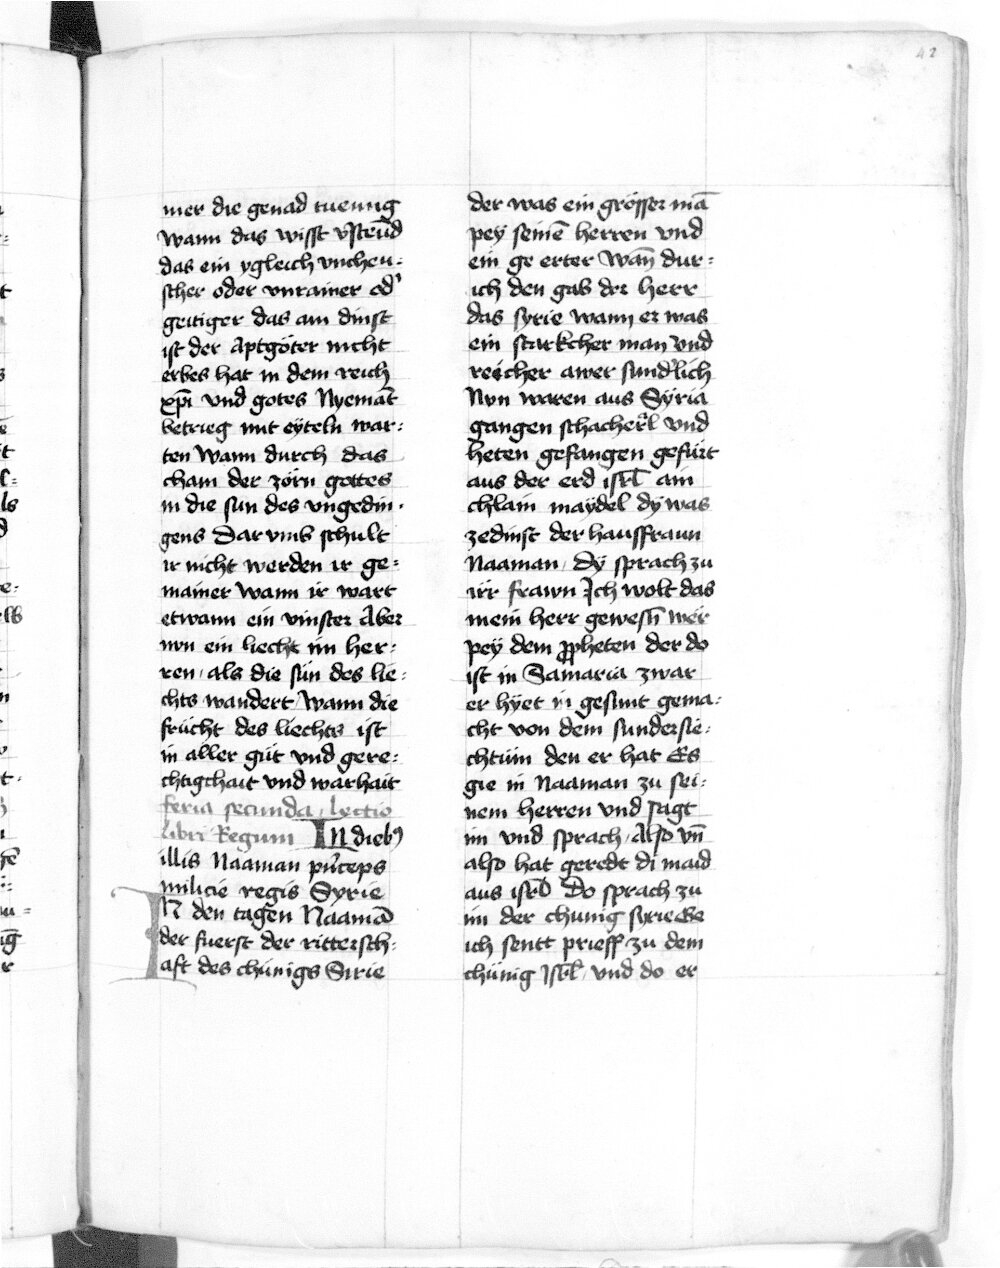 42
mer die genad tuenng
wann das wisst vsteūd
das ein ygleich vncheu-
scher oder vnrainer od'
geitiger das am dinst
ist der Aptgöter nicht
erbes hat in dem reich
xpi vnd gotes Nyemāt
betrieg mit eyteln war-
ten Wann durch das
cham der zörn gottes
in die sun des vngedin-
gens Darvmb schult
ir nicht werden ir ge-
mainer Wann ir wart
etwann ein vinster Aber
nvn ein liecht im her-
ren / als die sün des lie-
chts wandert / Wann die
frücht des liechts ist
in aller güt vnd gere-
chtigchait vnd warhait
feria secunda / lectio
libri Regum In dieb9
illis Naaman pnceps
milicie regis Syrie
IN den tagen Naamā
der fuerst der rittersch-
aft des chünigs Sirie
der was ein grösser mā
pey seinē herren vnd
ein ge erter Wañ dur-
ich den gab der herr
das syrie wann er was
ein starkcher man vnd
reicher awer sund'lich
Nvn waren aus Syria
gangen schacherl vnd
heten gefangen gefürt
aus der erd isrl ain
chlain maydel dy was
zedinst der hausffrawn
Naaman / Dy sprach zu
irr frawn Ich wolt das
mein herr gewesn wer
pey dem ppheten der do
ist in Samaria zwar
er hyet in gesunt gema-
cht von dem sundersie-
chtüm den er hat Es
gie in Naaman zu sei-
nem herren vnd sagt
im vnd sprach / Also vn̄
also hat geredt di maid
aus isrl Do sprach zu
im der chunig syrie Ge
ich sentt prieff zu dem
chünig Isrl / vnd do er